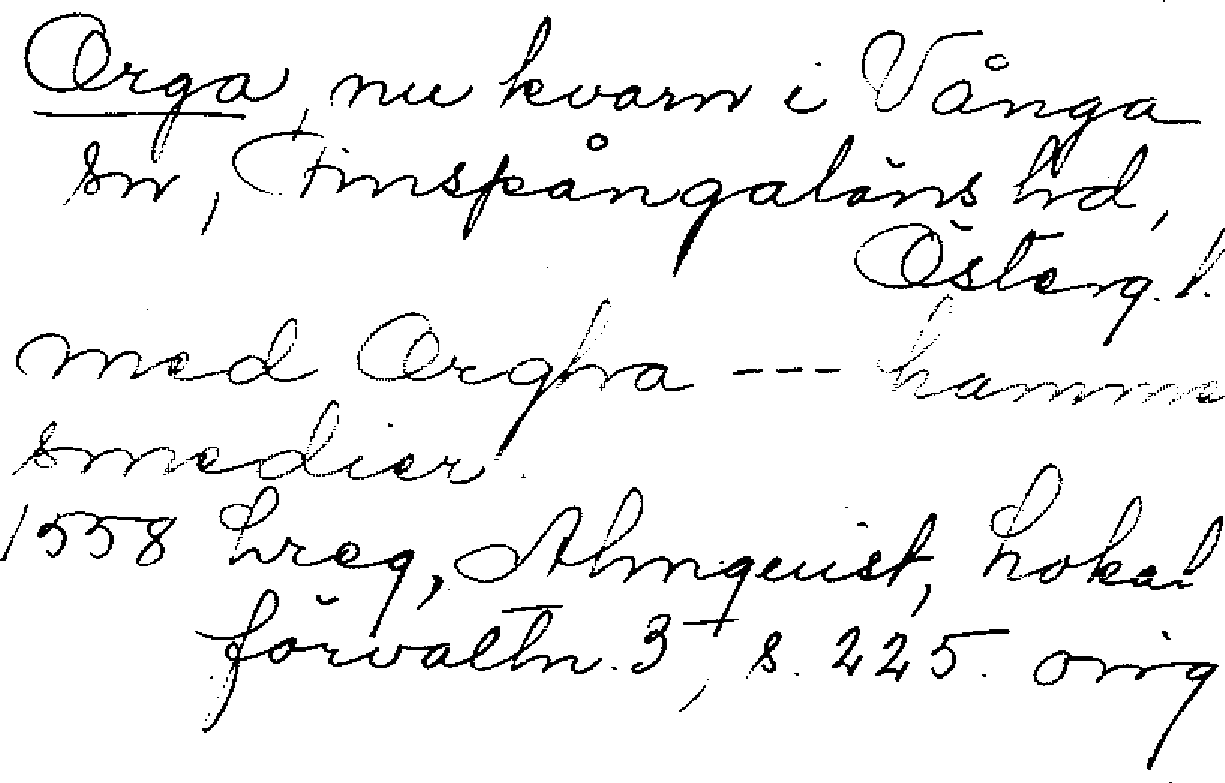 Orga, nu kvarn i Vånga
sn, Finspångaläns hd,
Österg. l.
med Orghra --- hamma
smedier.
1558 Lreg, Almquist, Lokal
förvaltn. 3, s. 225. orig